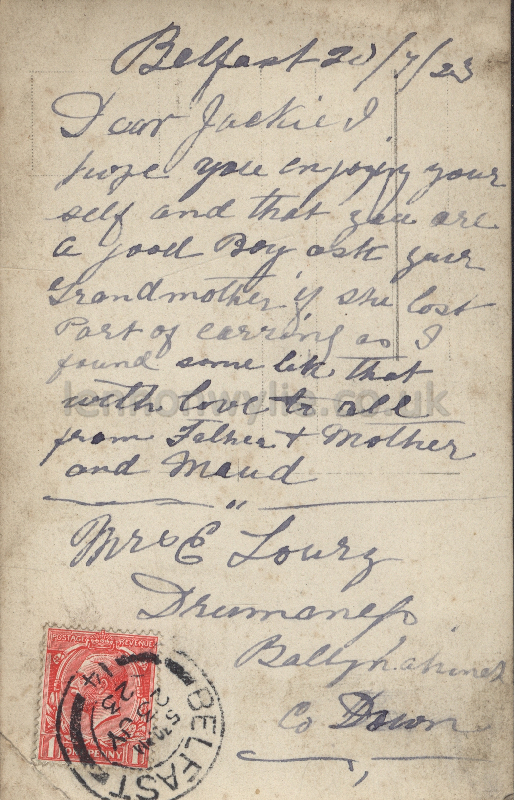 Belfast 20/7/23
Dear Jackie I
hope you enjoying your
self and that you are
a good Boy ask your
Grandmother if she lost
Part of earring as I
found some lik that
with love to all
from Father + Mother
and Maud
Mrs E Loury
Drumaness
Ballynahinch
Co Down
lennonwylie.co.uk
POSTAGE REVENUE
ONE PENNY
BELFAST